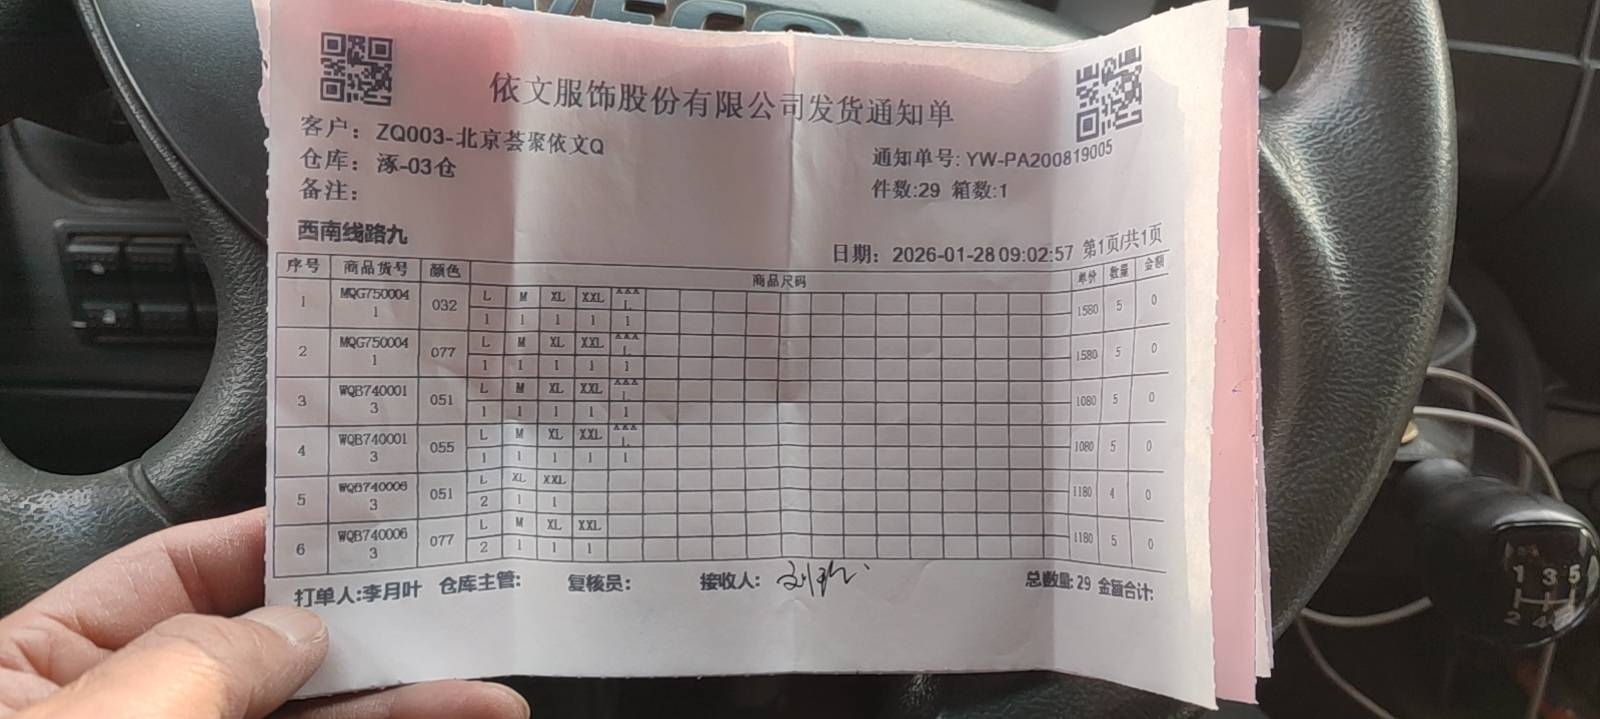 IVECO
依文服饰股份有限公司发货通知单
客户： ZQ003-北京荟聚依文Q
仓库： 涿-03仓
通知单号: YW-PA200819005
备注：
件数:29 箱数:1
西南线路九
日期： 2026-01-28 09:02:57 第1页/共1页
序号 商品货号 颜色 商品尺码 单价 数量 金额
1 MQG7500041 032 L M XL XXL XXXL 1580 5 0
1 1 1 1 1
2 MQG7500041 077 L M XL XXL XXXL 1580 5 0
1 1 1 1 1
3 WQB7400013 051 L M XL XXL XXXL 1080 5 0
1 1 1 1 1
4 WQB7400013 055 L M XL XXL XXXL 1080 5 0
1 1 1 1 1
5 WQB7400063 051 L XL XXL 1180 4 0
2 1 1
6 WQB7400063 077 L M XL XXL 1180 5 0
2 1 1 1
打单人:李月叶 仓库主管: 复核员: 接收人: 总数量: 29 金额合计:
1 3 5
2 4